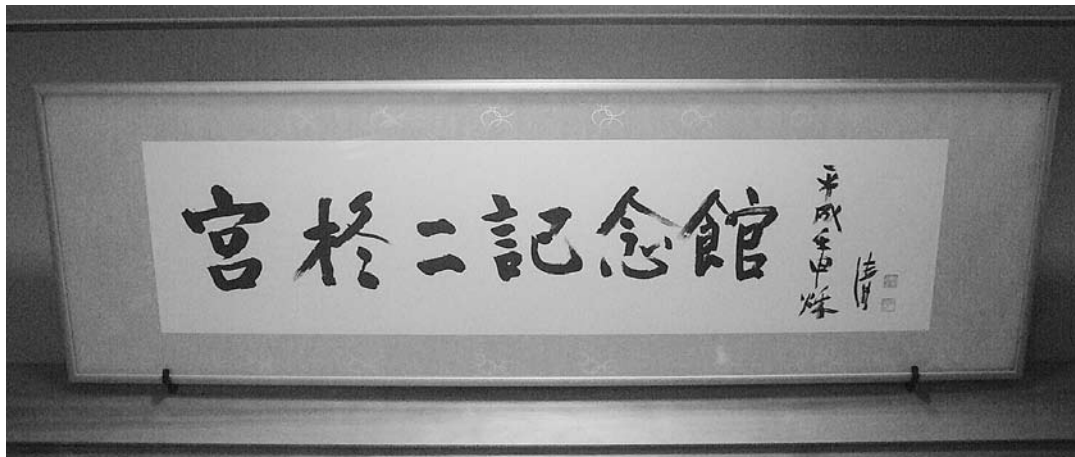 宮柊二記念館
平成壬申秌
清